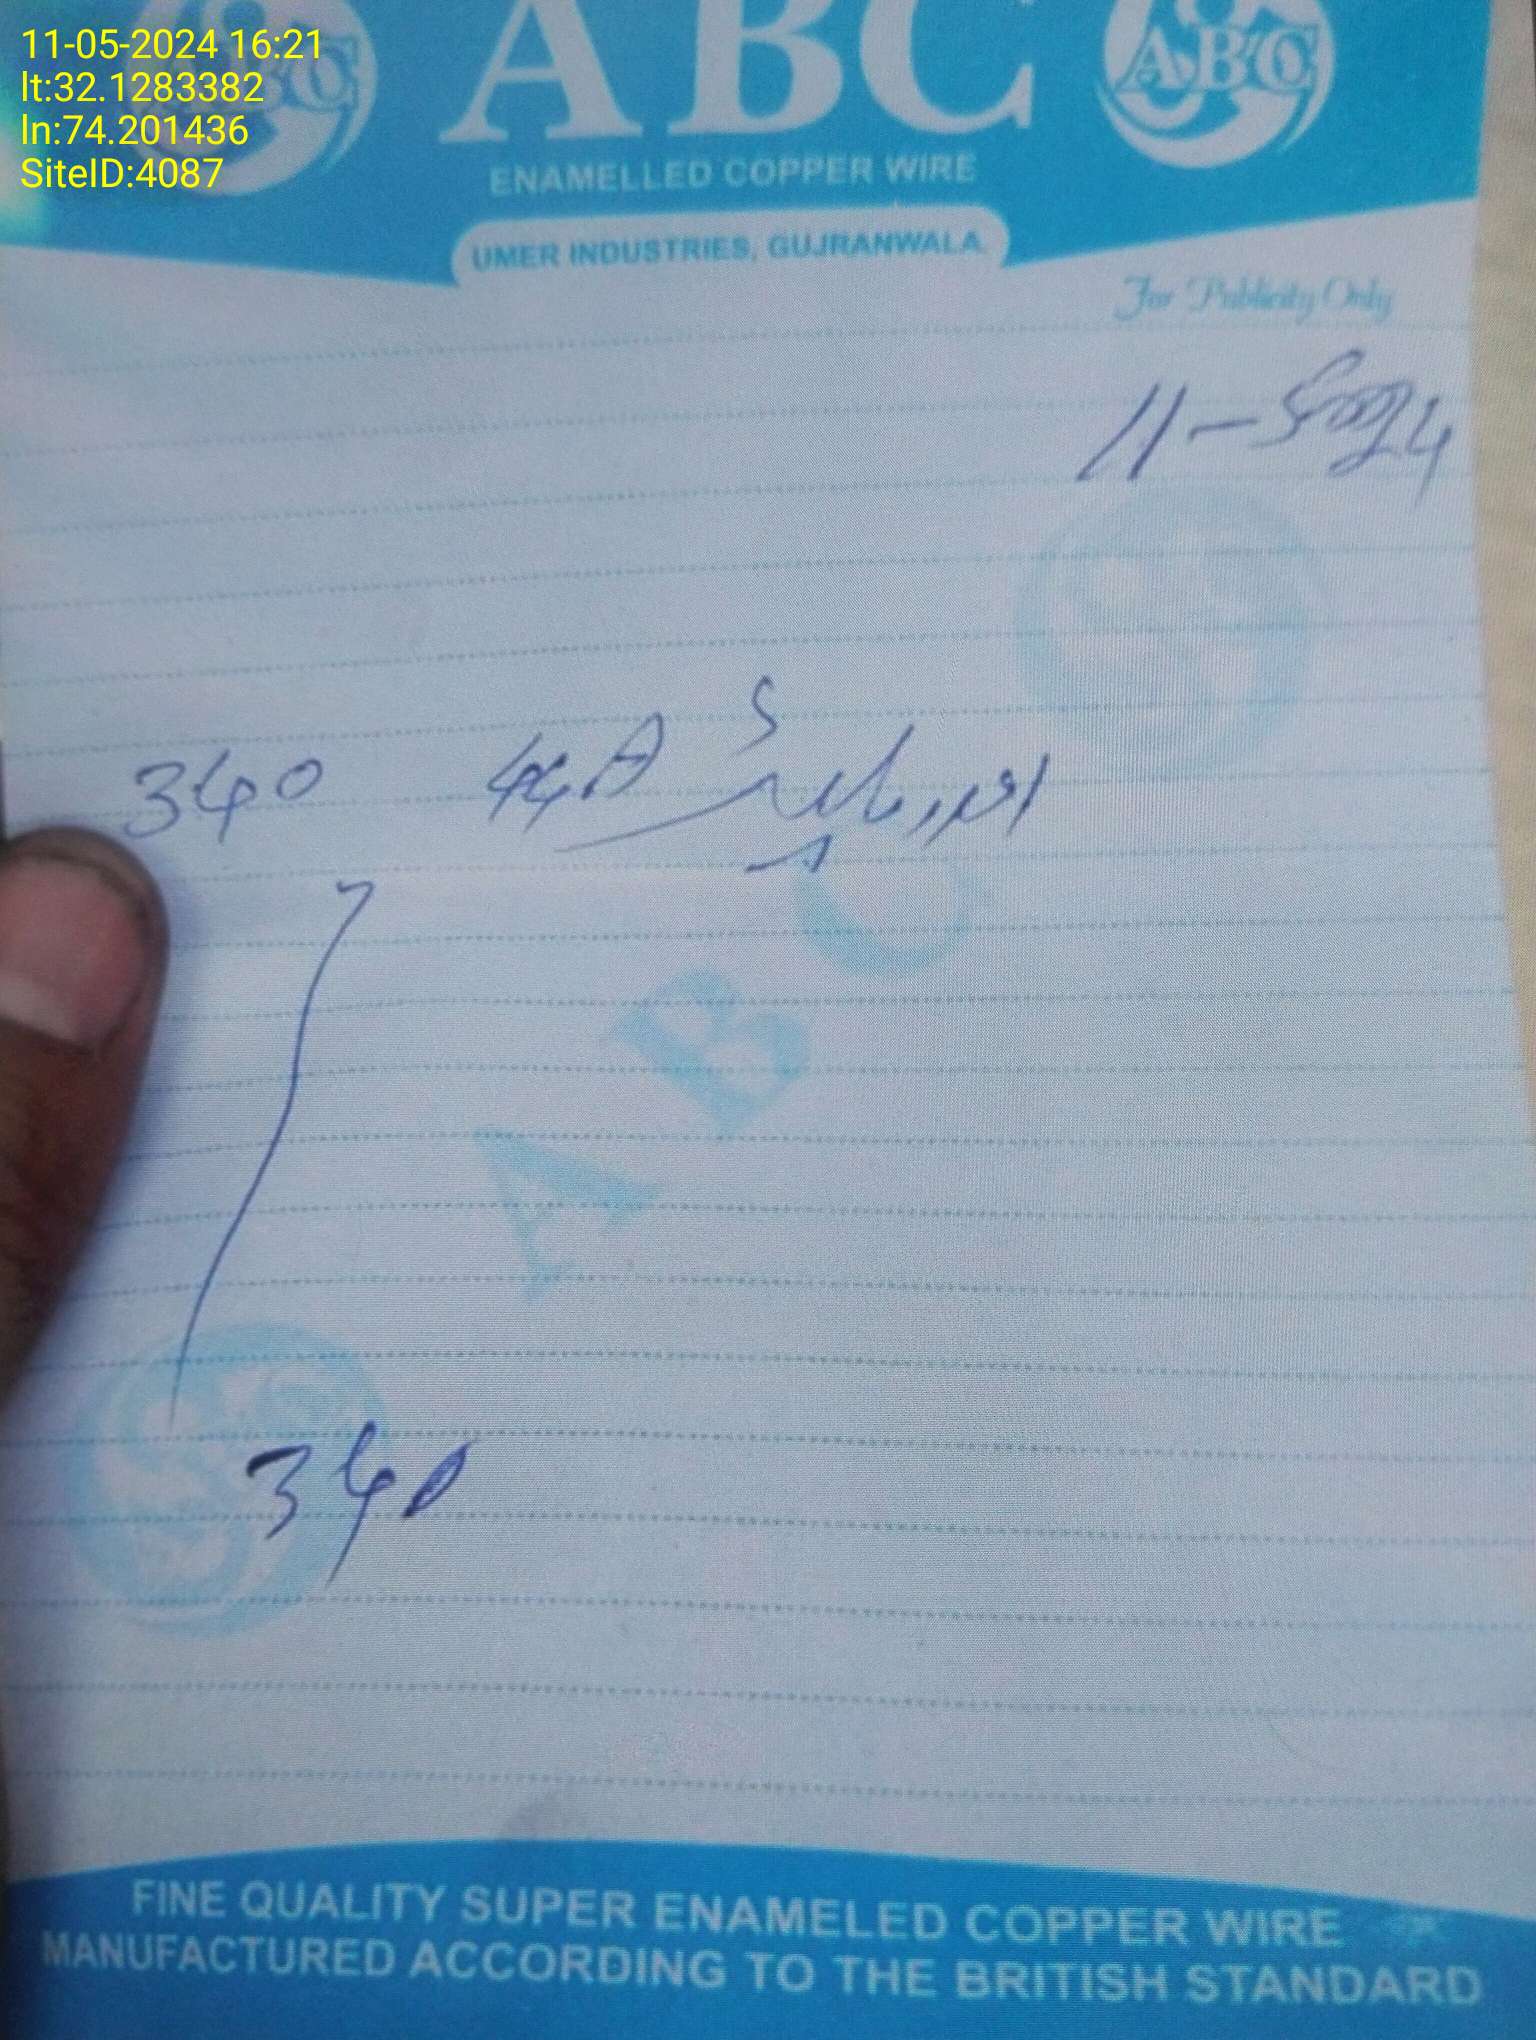 11-05-2024 16:21
lt:32.1283382
ln:74.201436
SiteID:4087
ABC
ABC
ABC
ENAMELLED COPPER WIRE
UMER INDUSTRIES, GUJRANWALA.
For Publicity Only
11-5-2024
340
A B C
340
FINE QUALITY SUPER ENAMELED COPPER WIRE
MANUFACTURED ACCORDING TO THE BRITISH STANDARD